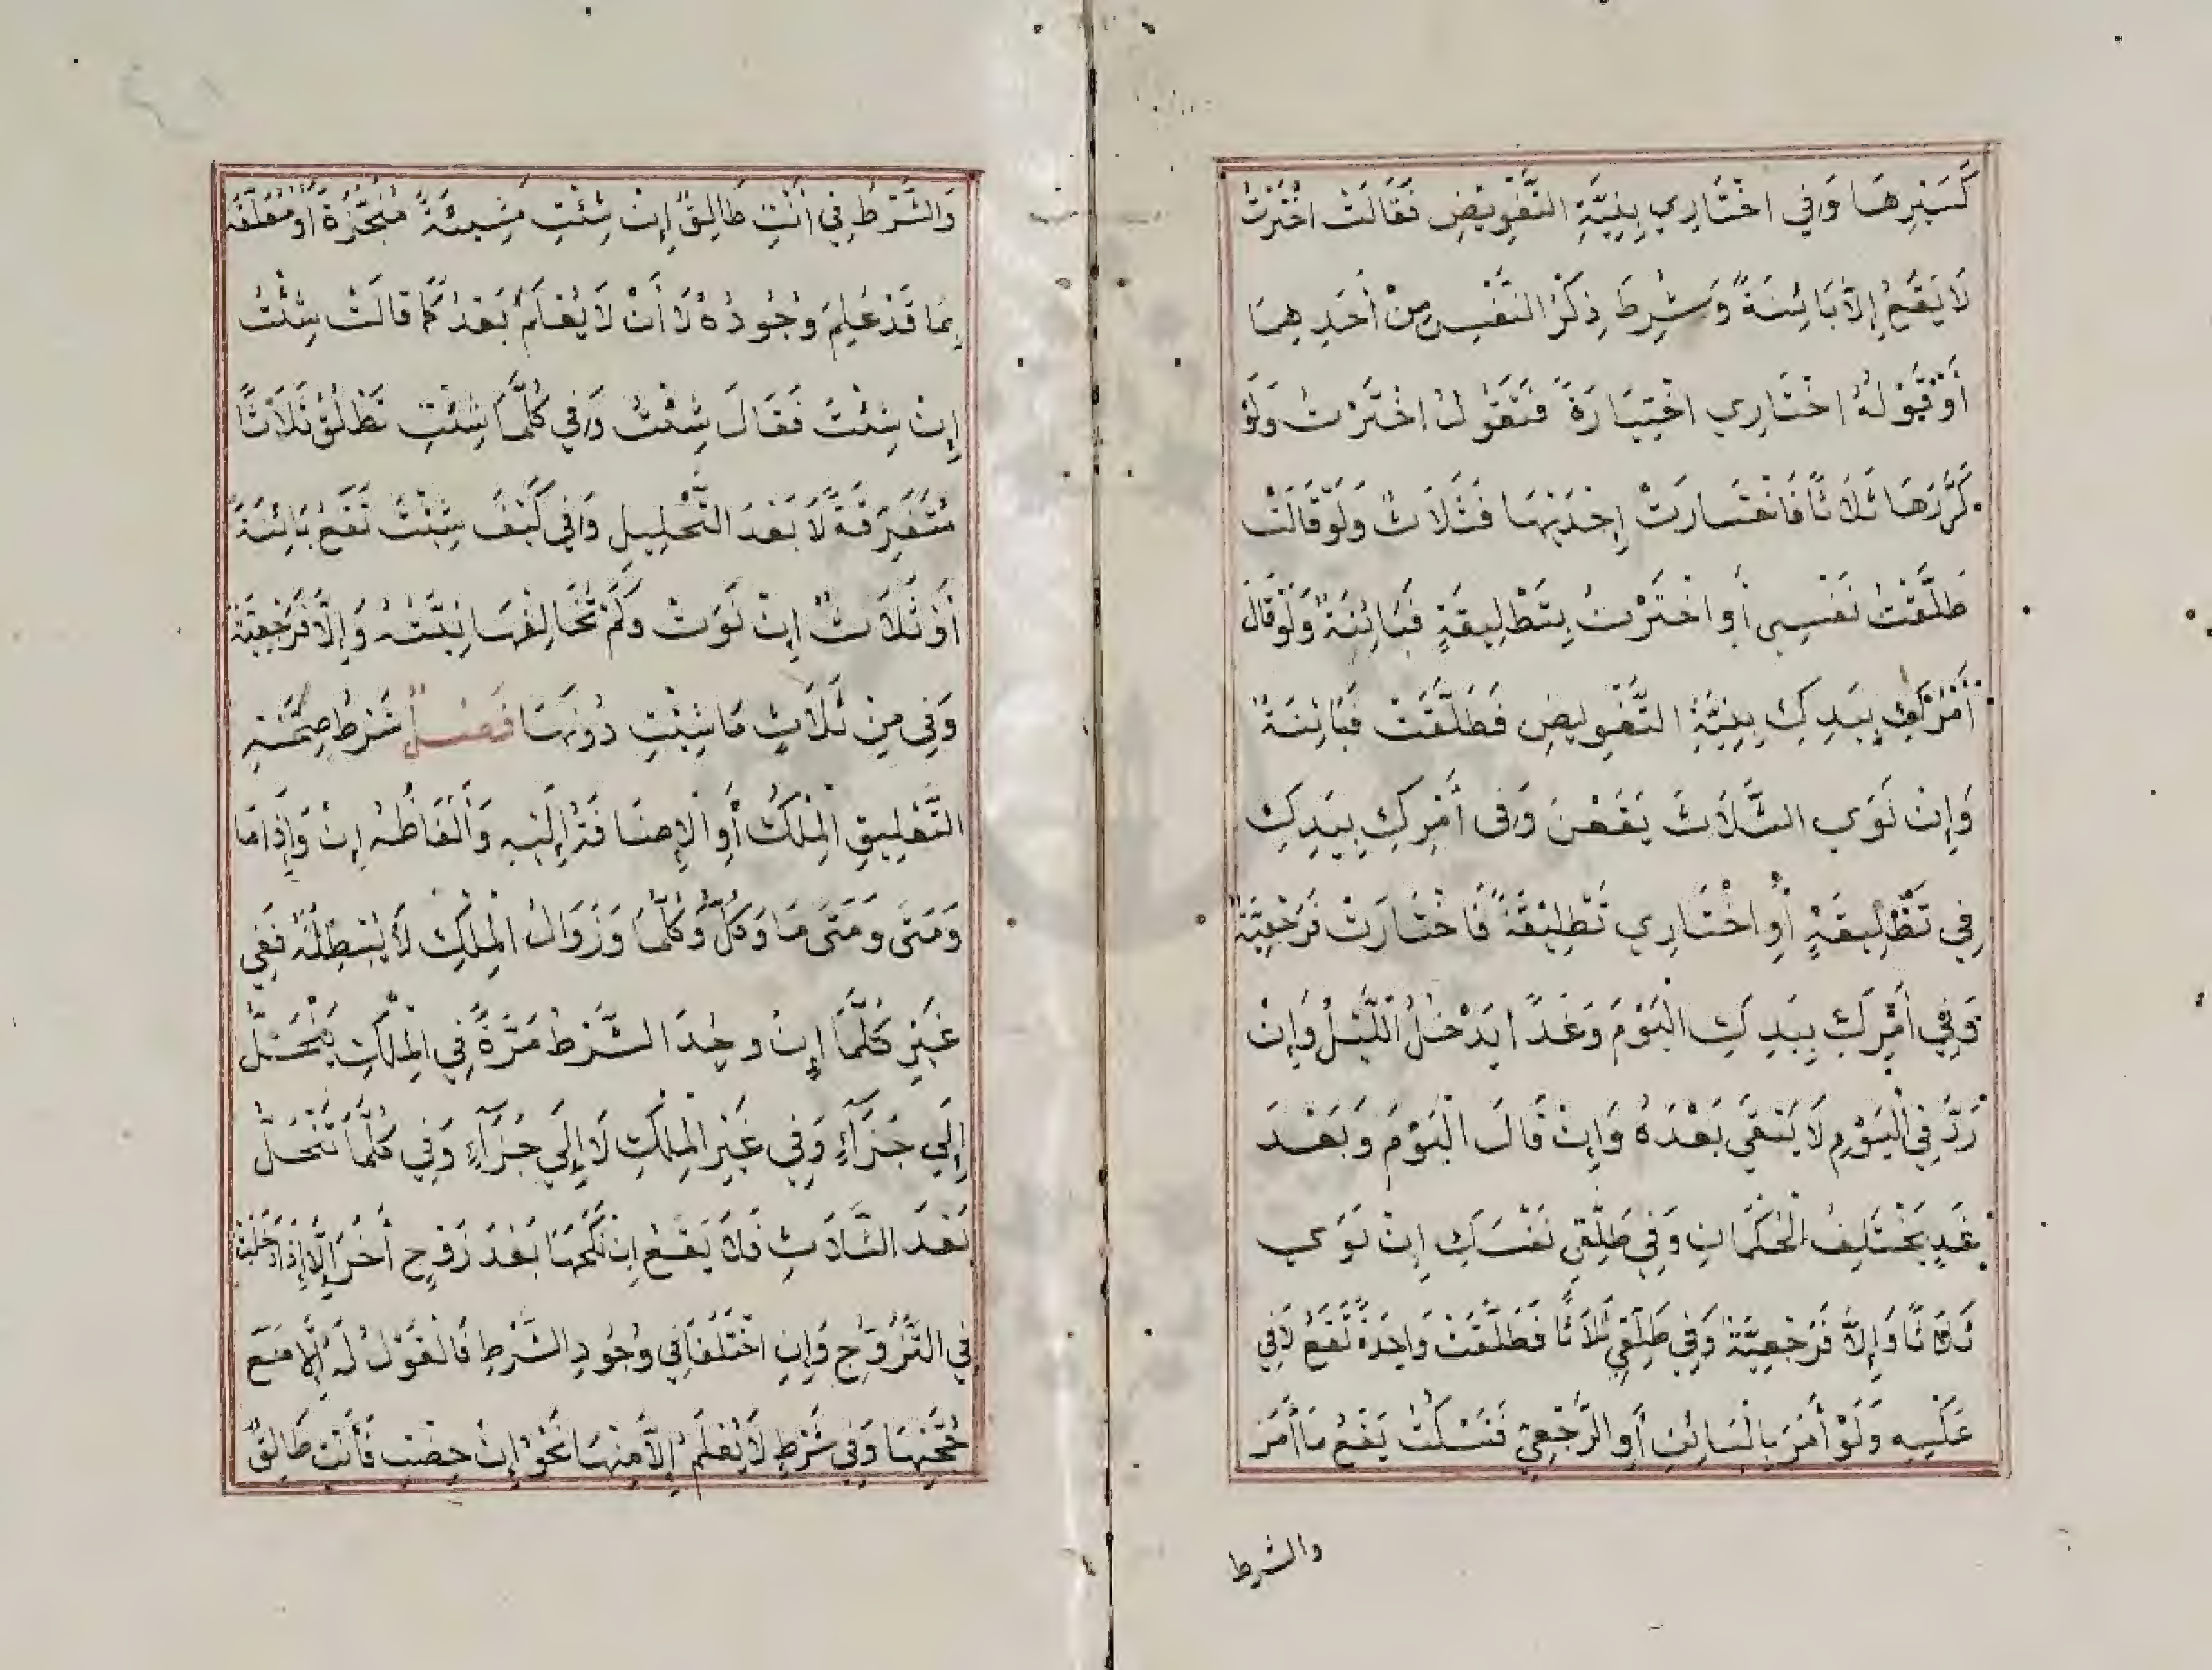 كَسَيْرِهَا وَفِي اخْتَارِي بِنِيَّةِ التَّفْوِيضِ فَقَالَتْ اخْتَرْتُ
لَا يَقَعُ إِلَّا بَائِنَةً وَشُرِطَ ذِكْرُ النَّفْسِ مِنْ أَحَدِهِمَا
أَوْ قَوْلُهُ اخْتَارِي اخْتِيَارَةً فَتَقُولُ اخْتَرْتُ وَلَوْ
كَرَّرَهَا ثَلَاثًا فَاخْتَارَتْ إِحْدَيهَا فَثَلَاثٌ وَلَوْ قَالَتْ
طَلَّقْتُ نَفْسِي أَوِ اخْتَرْتُ بِتَطْلِيقَةٍ فَبَائِنَةٌ وَلَوْ قَالَ
أَمْرُكِ بِيَدِكِ بِنِيَّةِ التَّفْوِيضِ فَطَلَّقَتْ فَبَائِنَةٌ
وَإِنْ نَوَي الثَّلَاثَ يَقَعْنَ وَفِي أَمْرُكِ بِيَدِكِ
فِي تَطْلِيقَةٍ أَوِ اخْتَارِي تَطْلِيقَةً فَاخْتَارَتْ فَرَجْعِيَّةٌ
وَفِي أَمْرُكِ بِيَدِكِ الْيَوْمَ وَغَدًا يَدْخُلُ اللَّيْلُ وَإِنْ
رَدَّ فِي الْيَوْمِ لَا يَبْقَي بَعْدَهُ وَإِنْ قَالَ الْيَوْمَ وَبَعْدَ
غَدٍ يَخْتَلِفُ الْحُكْمَانِ وَفِي طَلِّقِي نَفْسَكِ إِنْ نَوَي
ثَلَاثًا وَإِلَّا فَرَجْعِيَّةٌ وَفِي طَلِّقِي ثَلَاثًا فَطَلَّقَتْ وَاحِدَةً تَقَعُ لَا فِي
عَكْسِهِ وَلَوْ أَمَرَ بِالْبَائِنِ أَوِ الرَّجْعِيِّ فَعَكَسَتْ يَقَعُ مَا أَمَرَ
والشرط
وَالشَّرْطُ فِي أَنْتِ طَالِقٌ إِنْ شِئْتِ مَشِيئَةً مُنَجَّزَةً أَوْ مُعَلَّقَةً
بِمَا قَدْ عُلِمَ وُجُودُهُ لَا أَنْ لَا يُعْلَمَ بَعْدُ كَمَا قَالَتْ شِئْتُ
إِنْ شِئْتَ فَقَالَ شِئْتُ وَفِي كُلَّمَا شِئْتِ تَطْلُقُ ثَلَاثًا
مُتَفَرِّقَةً لَا بَعْدَ التَّحْلِيلِ وَفِي كَيْفَ شِئْتِ تَقَعُ بَائِنَةً
أَوْ ثَلَاثٌ إِنْ نَوَتْ وَلَمْ تُخَالِفْهَا نِيَّتُهُ وَإِلَّا فَرَجْعِيَّةٌ
وَفِي مِنْ ثَلَاثٍ مَا شِئْتِ دُونَهَا فَصْلٌ شَرْطُ صِحَّةِ
التَّعْلِيقِ الْمِلْكُ أَوِ الْإِضَافَةُ إِلَيْهِ وَأَلْفَاظُهُ إِنْ وَإِذَا مَا
وَمَتَى وَمَتَى مَا وَكُلُّ وَكُلَّمَا وَزَوَالُ الْمِلْكِ لَا يُبْطِلُهُ فَفِي
غَيْرِ كُلَّمَا إِنْ وُجِدَ الشَّرْطُ مَرَّةً فِي الْمِلْكِ يَنْحَلُّ
إِلَي جَزَآءٍ وَفِي غَيْرِ الْمِلْكِ لَا إِلَي جَزَآءٍ وَفِي كُلَّمَا تَنْحَلُّ
بَعْدَ الثَّلَاثِ فَلَا يَقَعُ إِنْ نَكَحَهَا بَعْدَ زَوْجٍ أٰخَرَ إِلَّا إِذَا دَخَلَتْ
فِي التَّزَوُّجِ وَإِنِ اخْتَلَفَا فِي وُجُودِ الشَّرْطِ فَالْقَوْلُ لَهُ إِلَّا مَعَ
حُجَّتِهَا وَفِي شَرْطٍ لَا يُعْلَمُ إِلَّا مِنْهَا نَحْوُ إِنْ حِضْتِ فَأَنْتِ طَالِقٌ